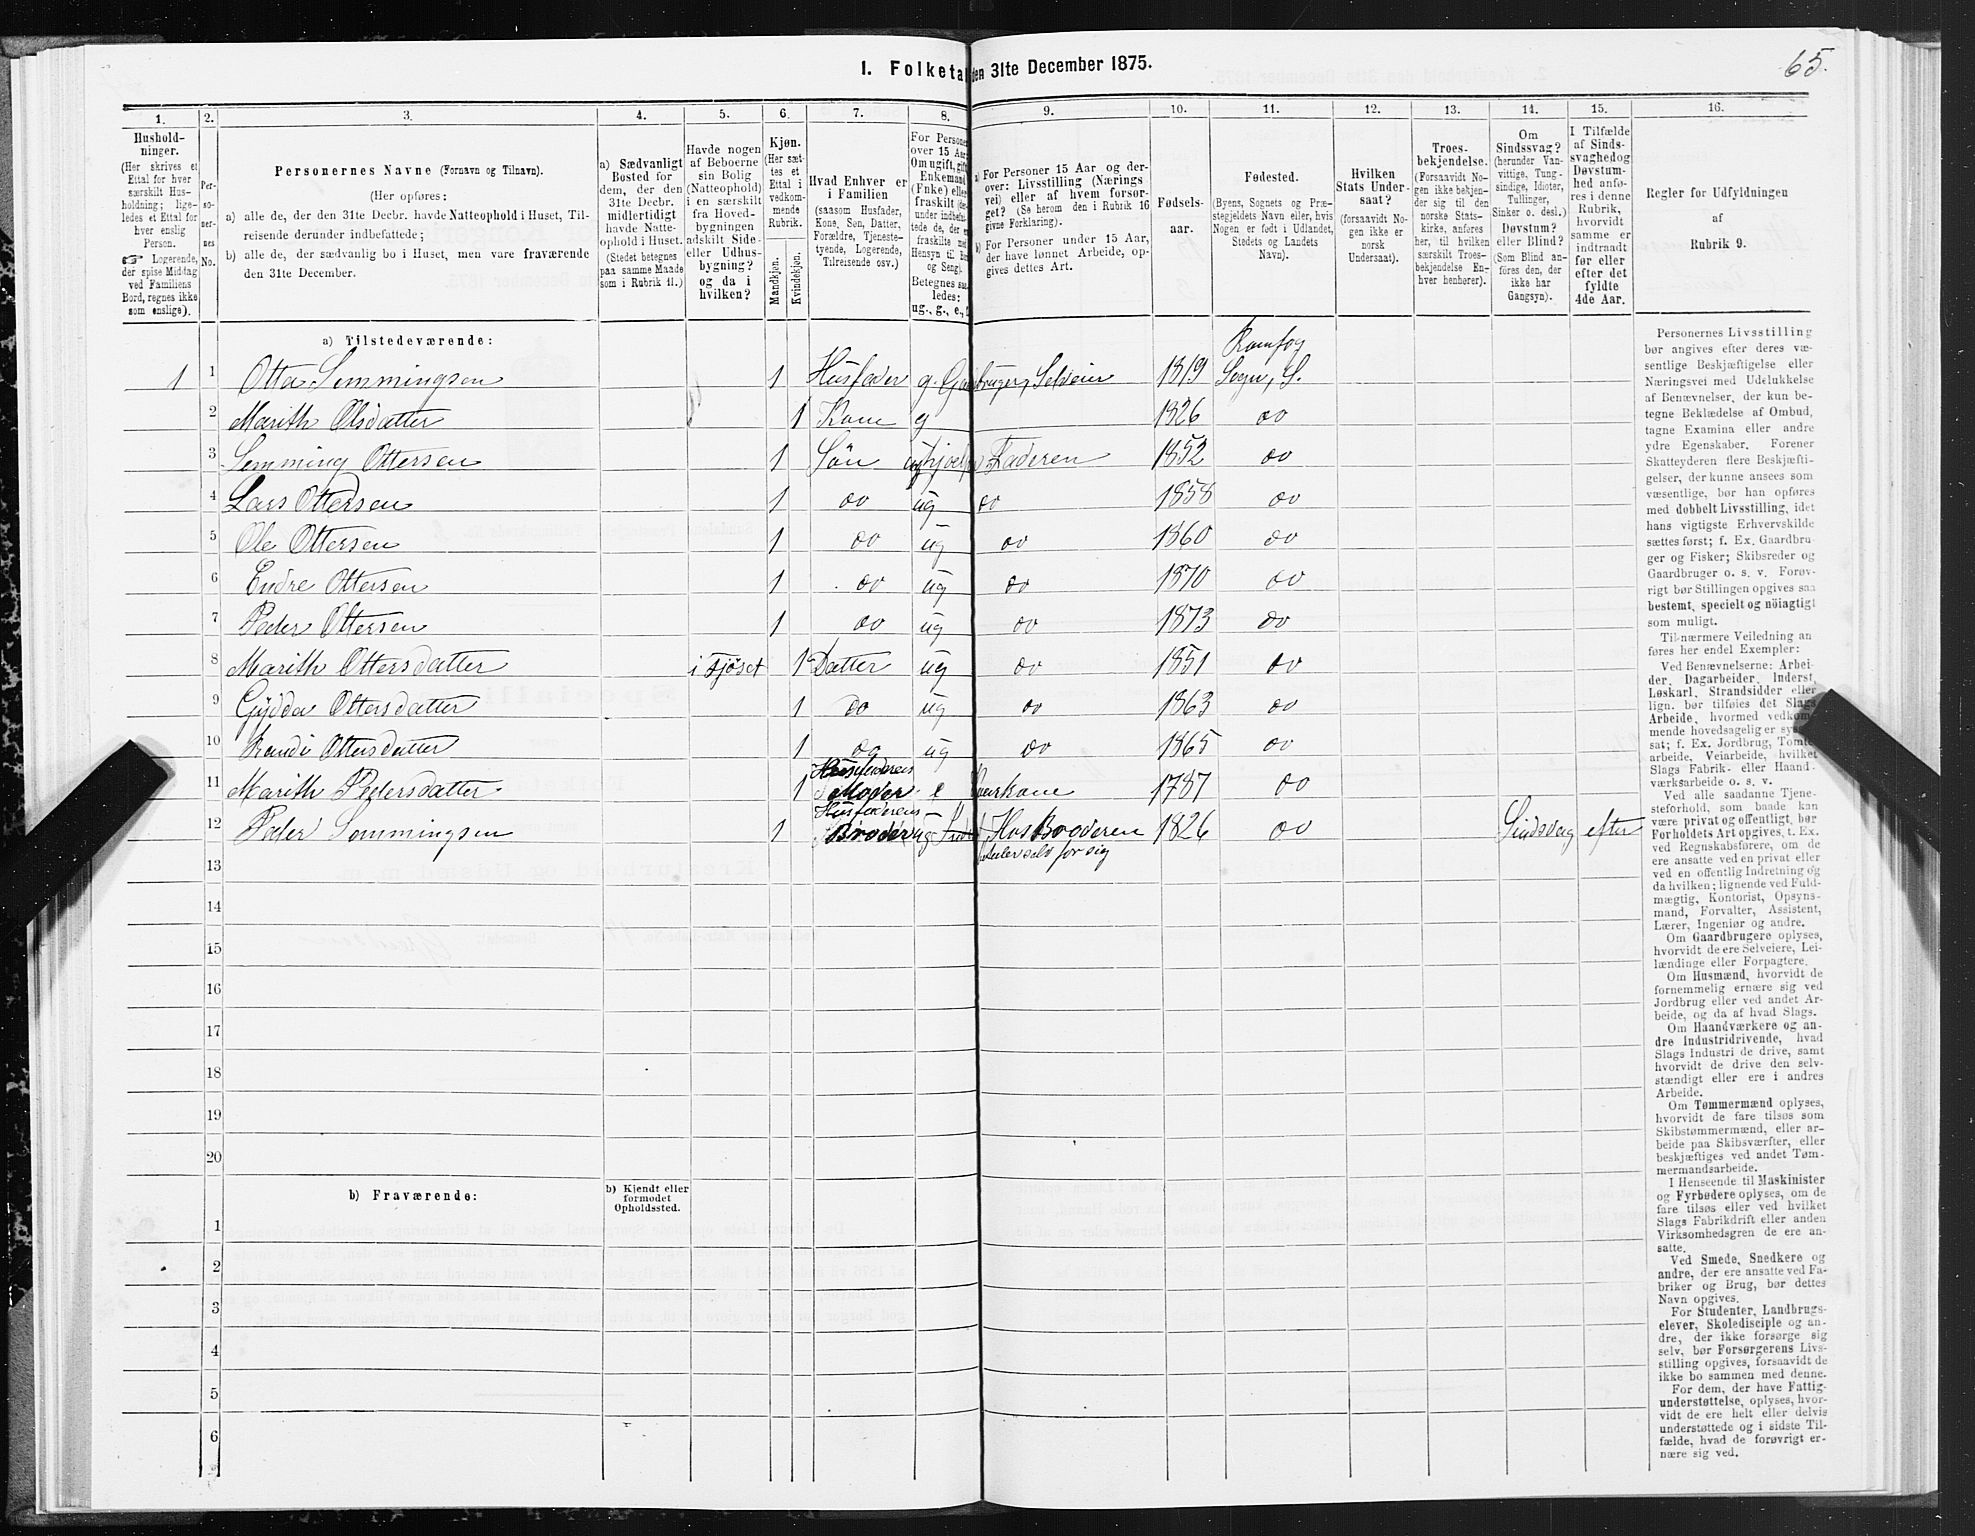 65.
I. Folketa den 31te December 1875.
1. 2. 3. 4. 5. 6. 7. 8. 9. 10. 11. 12. 13. 14. 15. 16.
Hushold-
ninger.
(Her skrives et
Ettal for hver
særskilt Hus-
holdning; lige-
ledes et Ettal for
hver enslig
Person.
☞ Logerende,
der spise Middag
ved Familiens
Bord, regnes ikke
som enslige).
Per-
so-
ner-
nes
No.
Personernes Navne (Fornavn og Tilnavn).
(Her opføres:
a) alle de, der den 31te Decbr. havde Natteophold i Huset, Til-
reisende derunder indbefattede;
b) alle de, der sædvanlig bo i Huset, men vare fraværende
den 31te December.
a) Sædvanligt
Bosted for
dem, der den
31te Decbr.
midlertidigt
havde Natte-
ophold i Huset.
(Stedet betegnes
paa samme Maade
som i Rubrik 11.)
Havde nogen
af Beboerne
sin Bolig
(Natteophold)
i en særskilt
fra Hoved-
bygningen
adskilt Side-
eller Udhus-
bygning?
og da i
hvilken?
Kjøn.
(Her sæt-
tes et
Ettal i
vedkom-
mende
Rubrik.
Mandkjøn.
Kvindekjøn.
Hvad Enhver er
i Familien
(saasom Husfader,
Kone, Søn, Datter,
Forældre, Tjeneste-
tyende, Logerende,
Tilreisende osv.)
For Persone
over 15 Aa
Om ugift, gift
Enkemand
(Fnke) elle
fraskilt (de
under indbefat
tede de, de
fraskilte me
Hensyn til B
og Seng).
Betegnes saa
ledes:
ug., g., e.,
a) For Personer 15 Aar og der-
over: Livsstilling (Nærings
vei) eller af hvem forsør-
get? (Se herom den i Rubrik 16
givne Forklaring).
b) For Personer under 15 Aar,
der have lønnet Arbeide, op-
gives dettes Art.
Fødsels-
aar.
Fødested.
(Byens, Sognets og Præ-
stegjeldets Navn eller, hvis
Nogen er født i Udlandet,
Stedets og Landets
Navn).
Hvilken
Stats Under-
saat?
(forsaavidt No-
gen ikke er
norsk
Undersaat).
Troes-
bekjendelse.
(Forsaavidt No-
gen ikke bekjen-
der sig til den
norske Stats-
kirke, anføres
her, til hvilken
særskilt Troes-
bekjendelse En-
hver henhører).
Om
Sindssvag?
(herunder Van-
vittige, Tung-
sindige, Idioter,
Tullinger,
Sinker o. desl.)
Døvstum?
eller Blind?
(Som Blind an-
føres den, der
ikke har
Gangsyn).
I Tilfælde
af Sinds-
svaghed og
Døvstum-
hed anfø-
res i denne
Rubrik,
hvorvidt
samme er
indtraadt
før eller
efter det
fyldte
4de Aar.
Regler for Udfyldningen
af
Rubrik 9.
a) Tilstedeværende:
1 1 Otta Semmingsen 1 Husfader g. Gaardbruger, Selveier 1819 Romfog Sogn, S.
2 Marith Olsdatter 1 Kone g 1826 do
3 Semming Ottersen 1 Søn ug hjoelper Faderen 1852 do
4 Lars Ottersen 1 do ug do 1858 do
5 Ole Ottersen 1 do ug do 1860 do
6 Endre Ottersen 1 do ug do 1870 do
7 Peder Ottersen 1 do ug do 1873 do
8 Marith Ottersdatter i Fjöset 1 Datter ug do 1851 do
9 Gydda Ottersdatter 1 do ug do 1863 do
10 Randi Ottersdatter 1 do ug do 1865 do
11 Marith Pedersdatter 1 Husfaderens Moder e Kaarkone 1787 do
12 Peder Semmingsen 1 Husfaderens Broder ug Hos Broderen 1826 do Sindsvag efter
selv for sig
13
14
15
16
17
18
19
20
b) Fraværende:
b) Kjendt eller
formodet
Opholdssted.
1
2
3
4
5
6
Personernes Livsstilling
bør angives efter deres væ-
sentlige Beskjæftigelse eller
Næringsvei med Udelukkelse
af Benævnelser, der kun be-
tegne Beklædelse af Ombud,
tagne Examina eller andre
ydre Egenskaber. Forener
Skatteyderen flere Beskjæfti-
gelser, der kunne ansees som
væsentlige, bør han opføres
med dobbelt Livsstilling, idet
hans vigtigste Erhvervskilde
sættes først; f. Ex. Gaardbru-
ger og Fisker; Skibsreder og
Gaardbruger o. s. v. Forøv-
rigt bør Stillingen opgives saa
bestemt, specielt og nöiagtigt
som muligt.
Til nærmere Veiledning an
føres her endel Exempler:
Ved Benævnelserne: Arbei-
der, Dagarbeider, Inderst,
Løskarl, Strandsidder eller
lign. bør tilføies det Slags
Arbeide, hvormed vedkom-
mende hovedsagelig er sys
sat; f. Ex. Jordbrug, Tomte
arbeide, Veiarbeide, hvilket
Slags Fabrik- eller Haand-
værksarbeide o. s. v.
Ved alle saadanne Tjene-
steforhold, som baade kan
være privat og offentligt, bør
Forholdets Art opgives, t. Ex.
ved Regnskabsførere, om de
ere ansatte ved en privat eller
ved en offentlig Indretning og
da hvilken; lignende ved Fuld-
mægtig, Kontorist, Opsyns-
mand, Forvalter, Assistent,
Lærer, Ingeniør og andre.
Om Gaardbrugere oplyses,
hvorvidt de ere Selveiere, Lei-
lændinge eller Forpagtere.
Om Husmænd, hvorvidt de
fornemmelig ernære sig ved
Jordbrug eller ved andet Ar-
beide, og da af hvad Slags.
Om Haandværkere og an-
dre Industridrivende, hvad
Slags Industri de drive, samt
hvorvidt de drive den selv-
stændigt eller ere i andres
Arbeide.
Om Tømmermænd oplyses,
hvorvidt de fare tilsøs som
Skibstømmermænd, eller ar-
beide paa Skibsværfter, eller
beskjæftiges ved andet Tøm-
mermandsarbeide.
I Henseende til Maskinister
og Fyrbødere oplyses, om de
fare tilsøs eller ved hvilket
Slags Fabrikdrift eller anden
Virksomhedsgren de ere an-
satte.
Ved Smede, Snedkere og
andre, der ere ansatte ved Fa-
briker og Brug, bør dettes
Navn opgives.
For Studenter, Landbrugs-
elever, Skoledisciple og an-
dre, der ikke forsørge sig
selv, bør Forsørgerens Livs-
stilling opgives, forsaavidt de
ikke bo sammen med denne.
For dem, der have Fattig-
understøttelse, oplyses, hvor-
vidt de ere helt eller delvis
understøttede og i sidste Til-
fælde, hvad de forøvrigt er-
nære sig ved.